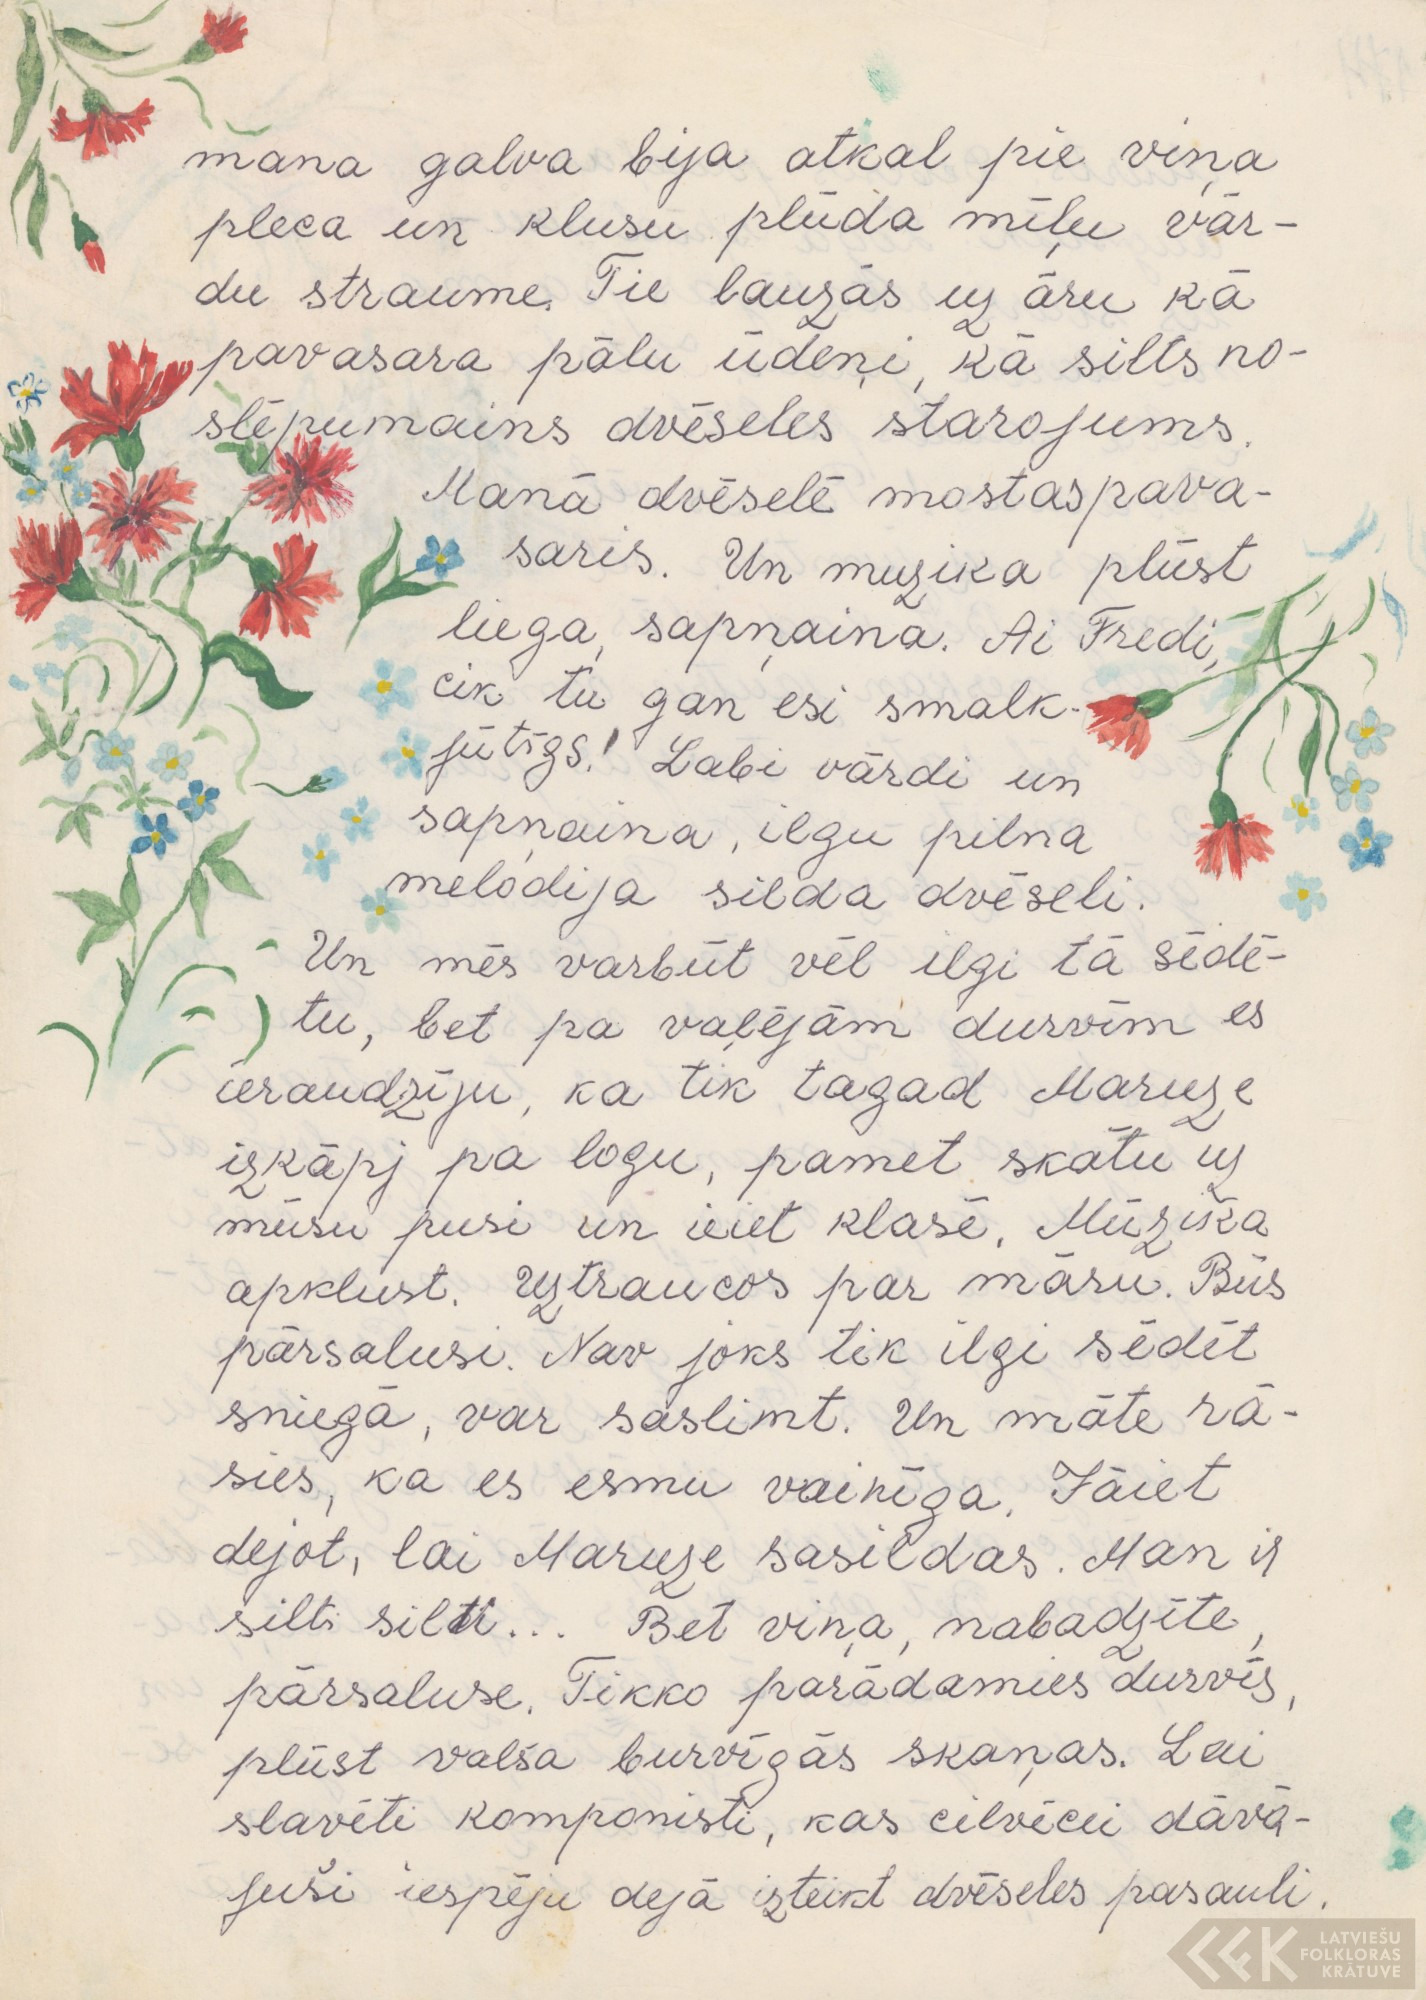 mana galva bija atkal pie viņa
pleca un klusu plūda mīļu vār-
du straume. Tie lauzās uz āru kā
pavasara pālu ūdeņi, kā silts no-
slēpumains dvēseles starojums.
Manā dvēselē mostas pava-
saris. Un muzika plūst
liega, sapņaina. Ai Fredi,
cik tu gan esi smalk-
jūtīgs! Labi vārdi un
sapņaina, ilgu pilna
melodija silda dvēseli.
Un mēs varbūt vēl ilgi tā sēdē-
tu, bet pa vaļējām durvīm es
ieraudzīju, ka tik tagad Maruze
izkāpj pa logu, pamet skatu uz
mūsu pusi un ieiet klasē. Mūzika
apklust. Uztraucos par māsu. Būs
pārsalusi. Nav joks tik ilgi sēdēt
sniegā, var saslimt. Un māte rā-
sies, ka es esmu vainīga. Jāiet
dejot, lai Maruze sasildas. Man ir
silti silti... Bet viņa, nabadzīte,
pārsaluse. Tikko parādamies durvīs,
plūst valša burvīgās skaņas. Lai
slavēti komponisti, kas cilvēcei dāvā-
juši iespēju dejā izteikt dvēseles pasauli.
LATVIEŠU
FOLKLORAS
KRĀTUVE